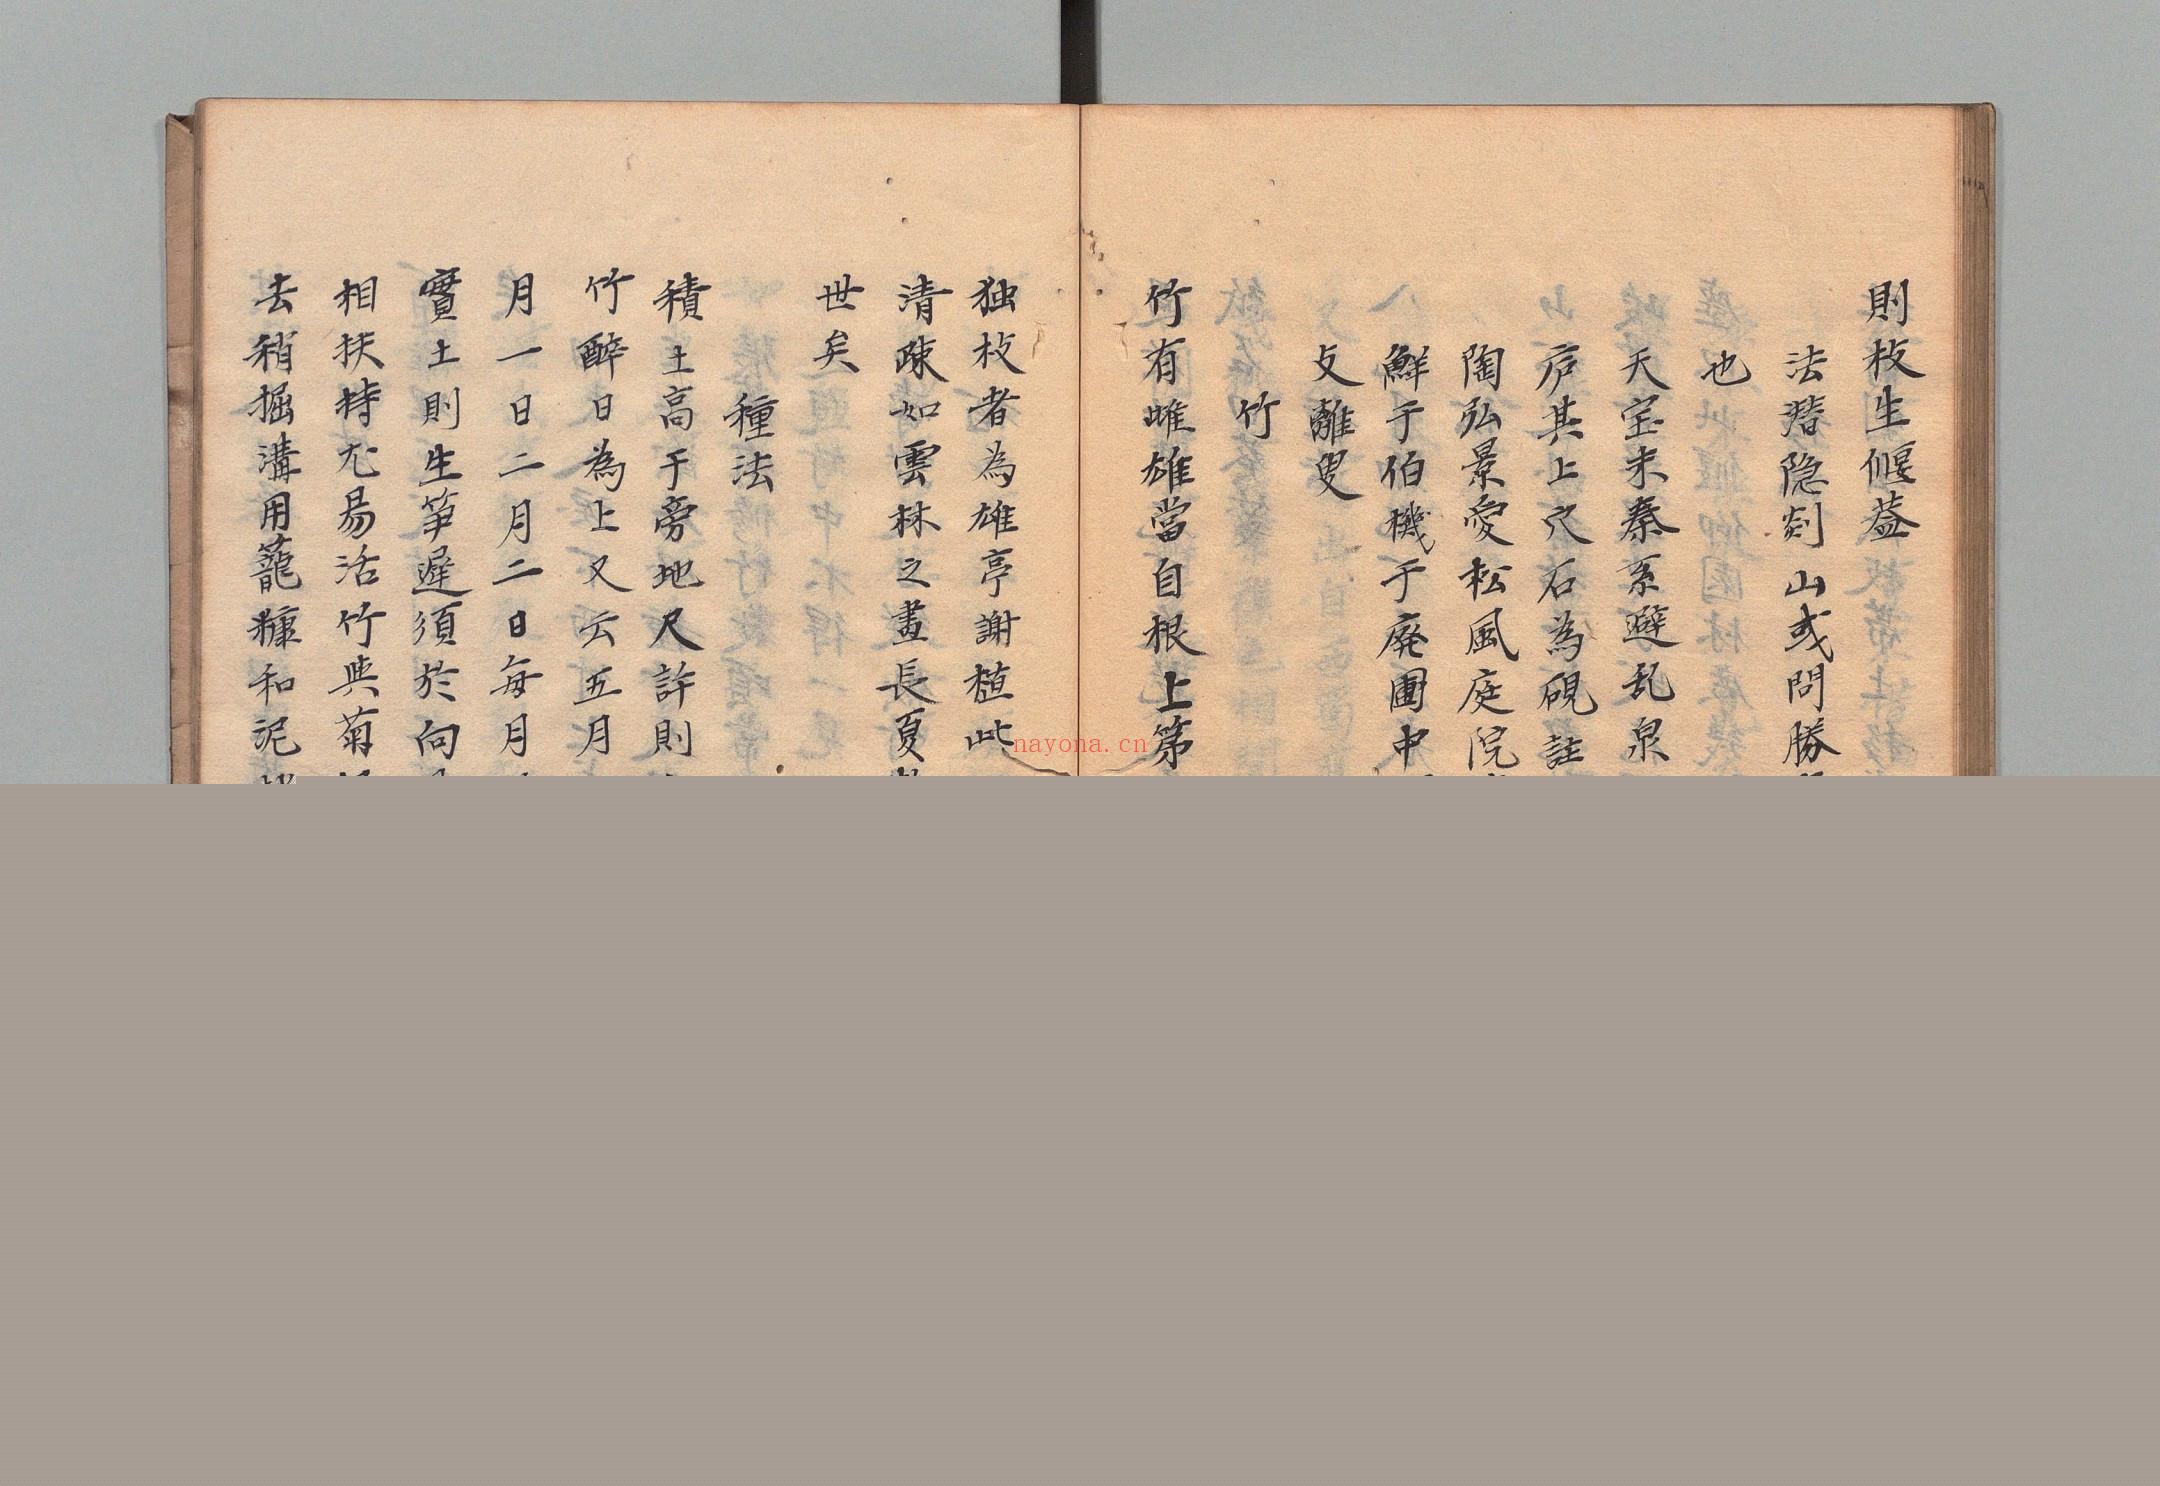 則枝生偃葢
法潜隐剡山或問勝
也
天宝末秦系避乱泉
庐其上穴石為硯註
陶弘景愛松風庭院
鮮于伯機于廃圃中
支離叟
竹
竹有雌雄當自根上第
独枝者為雄亭謝植此
清疎如雲林之畫長夏
世矣
種法
積土高于旁地尺許則
竹醉日為上又云五月
月一日二月二日每月
實土則生笋遲須於向
相扶持尤易活竹與菊
去稍掘溝用籠糠和泥
nayona.cn